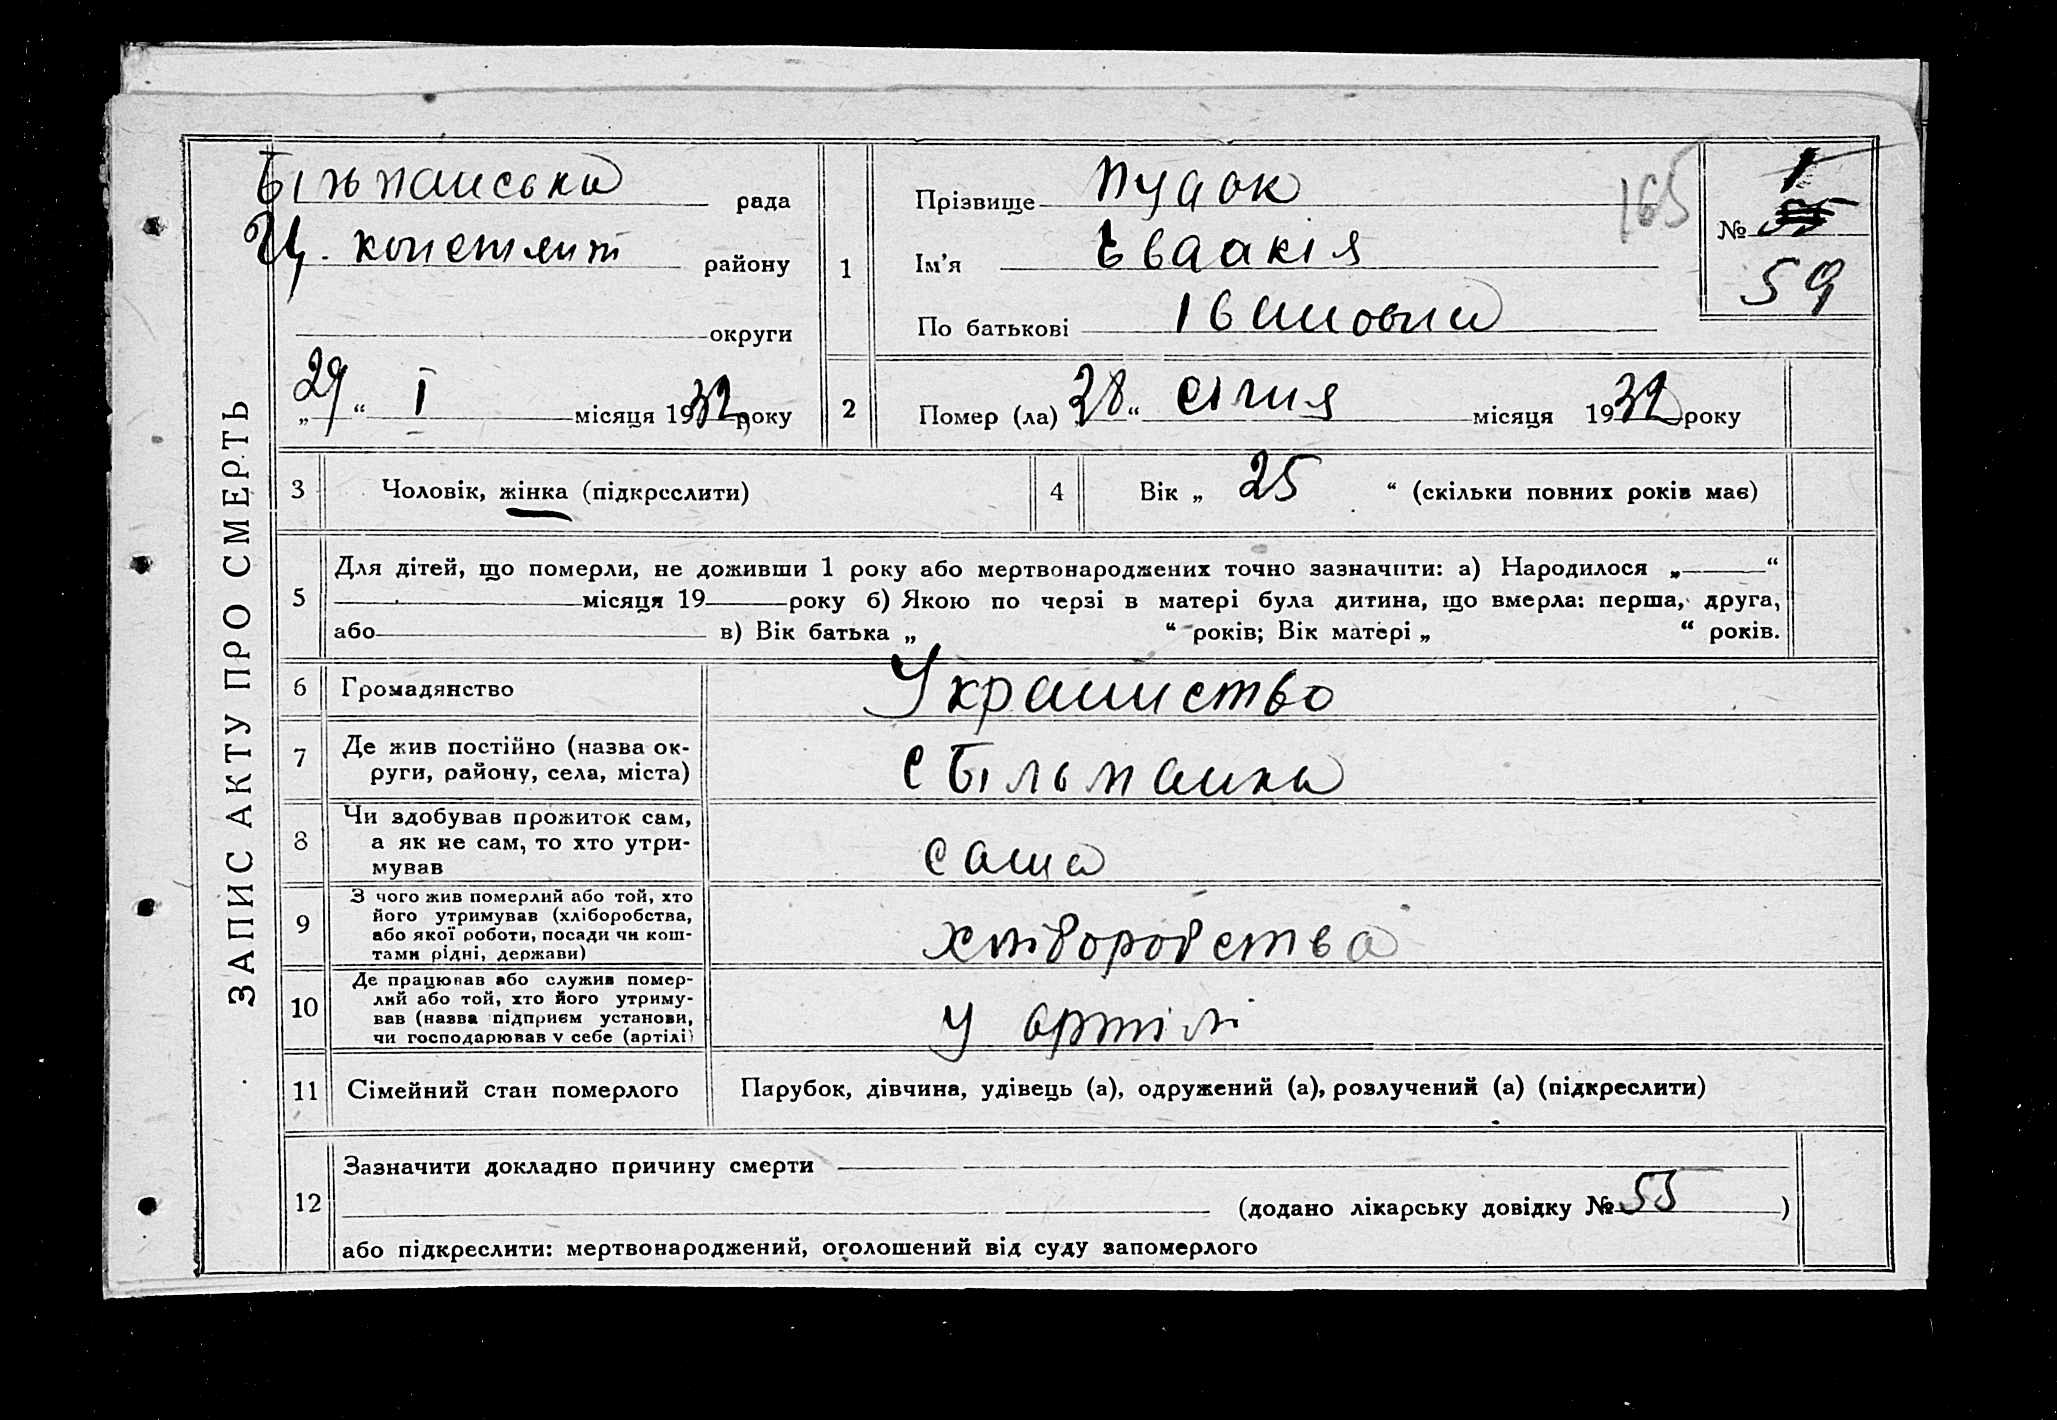 ЗАПИС АКТУ ПРО СМЕРТЬ
Більманська рада
Ц. Констянт району
округи
„29“ I місяця 1932 року
1
Прізвище Пудок
Ім'я Євдокія
По батькові Івановна
165
№ 1
55
59
2 Помер (ла) „28“ січня місяця 1932 року
3 Чоловік, жінка (підкреслити)
4 Вік „ 25 “ (скільки повних років має)
5 Для дітей, що померли, не доживши 1 року або мертвонароджених точно зазначити: а) Народилося „ “
місяця 19 року б) Якою по черзі в матері була дитина, що вмерла: перша, друга,
або в) Вік батька „ “ років; Вік матері „ “ років.
6 Громадянство Украинство
7 Де жив постійно (назва ок-
руги, району, села, міста) с Більманка
8 Чи здобував прожиток сам,
а як не сам, то хто утри-
мував
сама
9 З чого жив померлий або той, хто
його утримував (хліборобства,
або якої роботи, посади чи кош-
тами рідні, держави)
хліборобства
10 Де працював або служив помер-
лий або той, хто його утриму-
вав (назва підприєм установи,
чи господарював у себе (артілі)
у артілі
11 Сімейний стан померлого Парубок, дівчина, удівець (а), одружений (а), розлучений (а) (підкреслити)
12 Зазначити докладно причину смерти
(додано лікарську довідку № 55 )
або підкреслити: мертвонароджений, оголошений від суду запомерлого